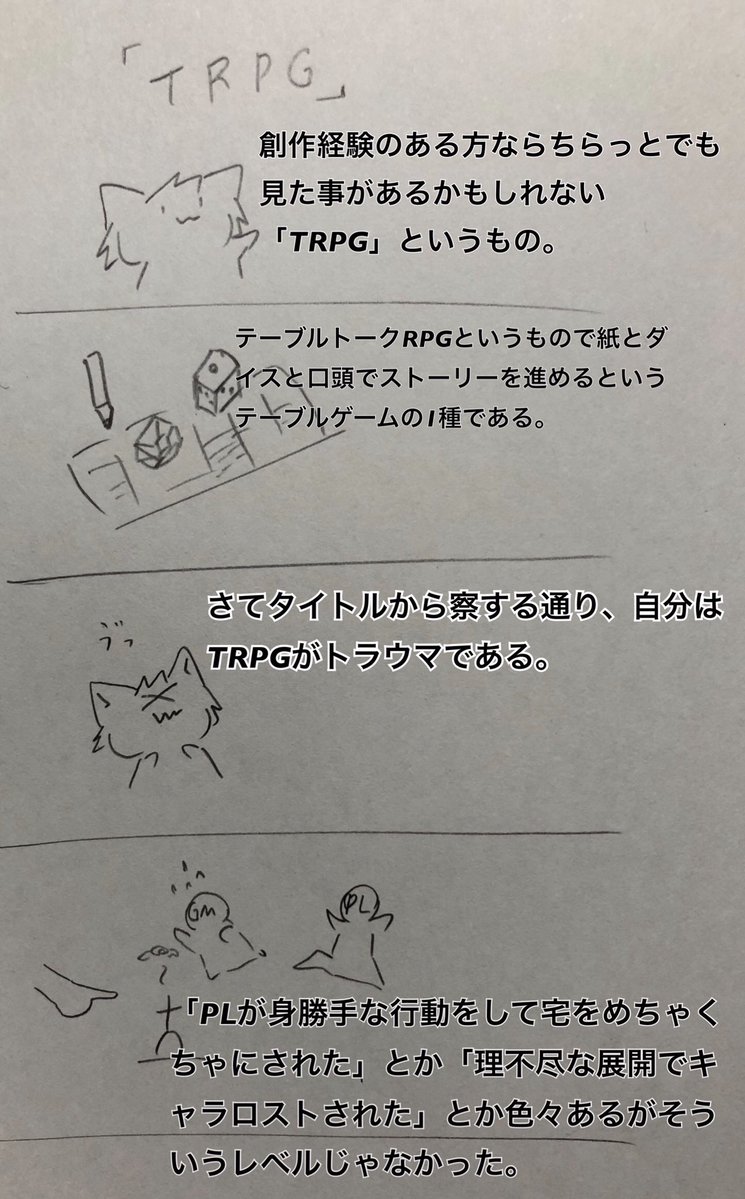 「TRPG」
創作経験のある方ならちらっとでも
見た事があるかもしれない
「TRPG」というもの。
テーブルトークRPGというもので紙とダ
イスと口頭でストーリーを進めるという
テーブルゲームの1種である。
さてタイトルから察する通り、自分は
TRPGがトラウマである。
ブッ
GM
PL
「PLが身勝手な行動をして宅をめちゃく
ちゃにされた」とか「理不尽な展開でキ
ャラロストされた」とか色々あるがそう
いうレベルじゃなかった。